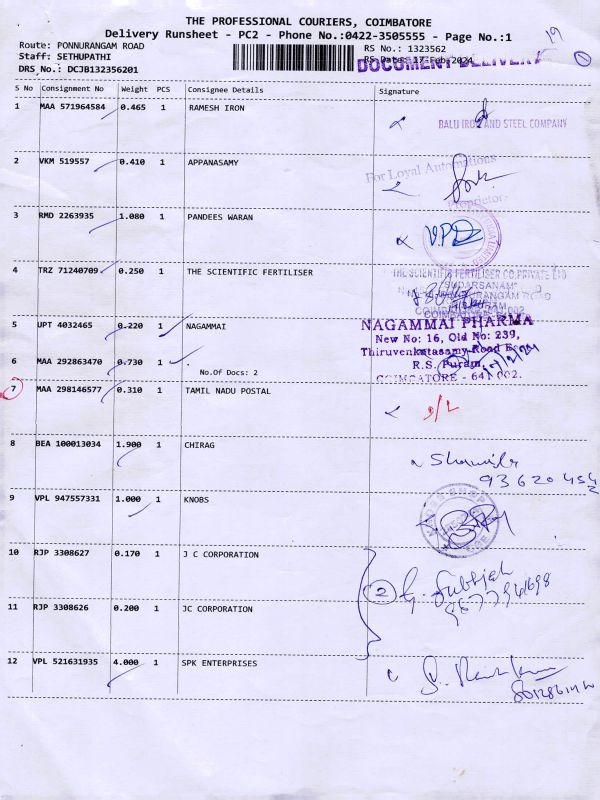 19
THE PROFESSIONAL COURIERS, COIMBATORE
Delivery Runsheet - PC2 - Phone No.:0422-3505555 - Page No.:1
Route: PONNURANGAM ROAD
RS No.: 1323562
Staff: SETHUPATHI
RS Date: 17-Feb-2024
DOCUMENT DELIVERY
1
DRS No.: DCJB132356201
S No Consignment No Weight PCS Consignee Details Signature
1 MAA 571964584 0.465 1 RAMESH IRON
BALU IRON AND STEEL COMPANY
2 VKM 519557 0.410 1 APPANASAMY
For Loyal Automations
Proprietor
3 RMD 2263935 1.080 1 PANDEES WARAN
V.P.D
4 TRZ 71240709 0.250 1 THE SCIENTIFIC FERTILISER
THE SCIENTIFIC FERTILISER CO. PRIVATE LTD
"SUDARSANAM"
5 UPT 4032465 0.220 1 NAGAMMAI
NAGAMMAI PHARMA
New No: 16, Old No: 239,
Thiruvenkatasamy Road East
R.S. Puram
COIMBATORE - 641 002.
6 MAA 292863470 0.730 1 .
No.Of Docs: 2
7 MAA 298146577 0.310 1 TAMIL NADU POSTAL
D/L
8 BEA 100013034 1.900 1 CHIRAG
9 VPL 947557331 1.000 1 KNOBS
10 RJP 3308627 0.170 1 J C CORPORATION
2
11 RJP 3308626 0.200 1 JC CORPORATION
12 VPL 521631935 4.000 1 SPK ENTERPRISES